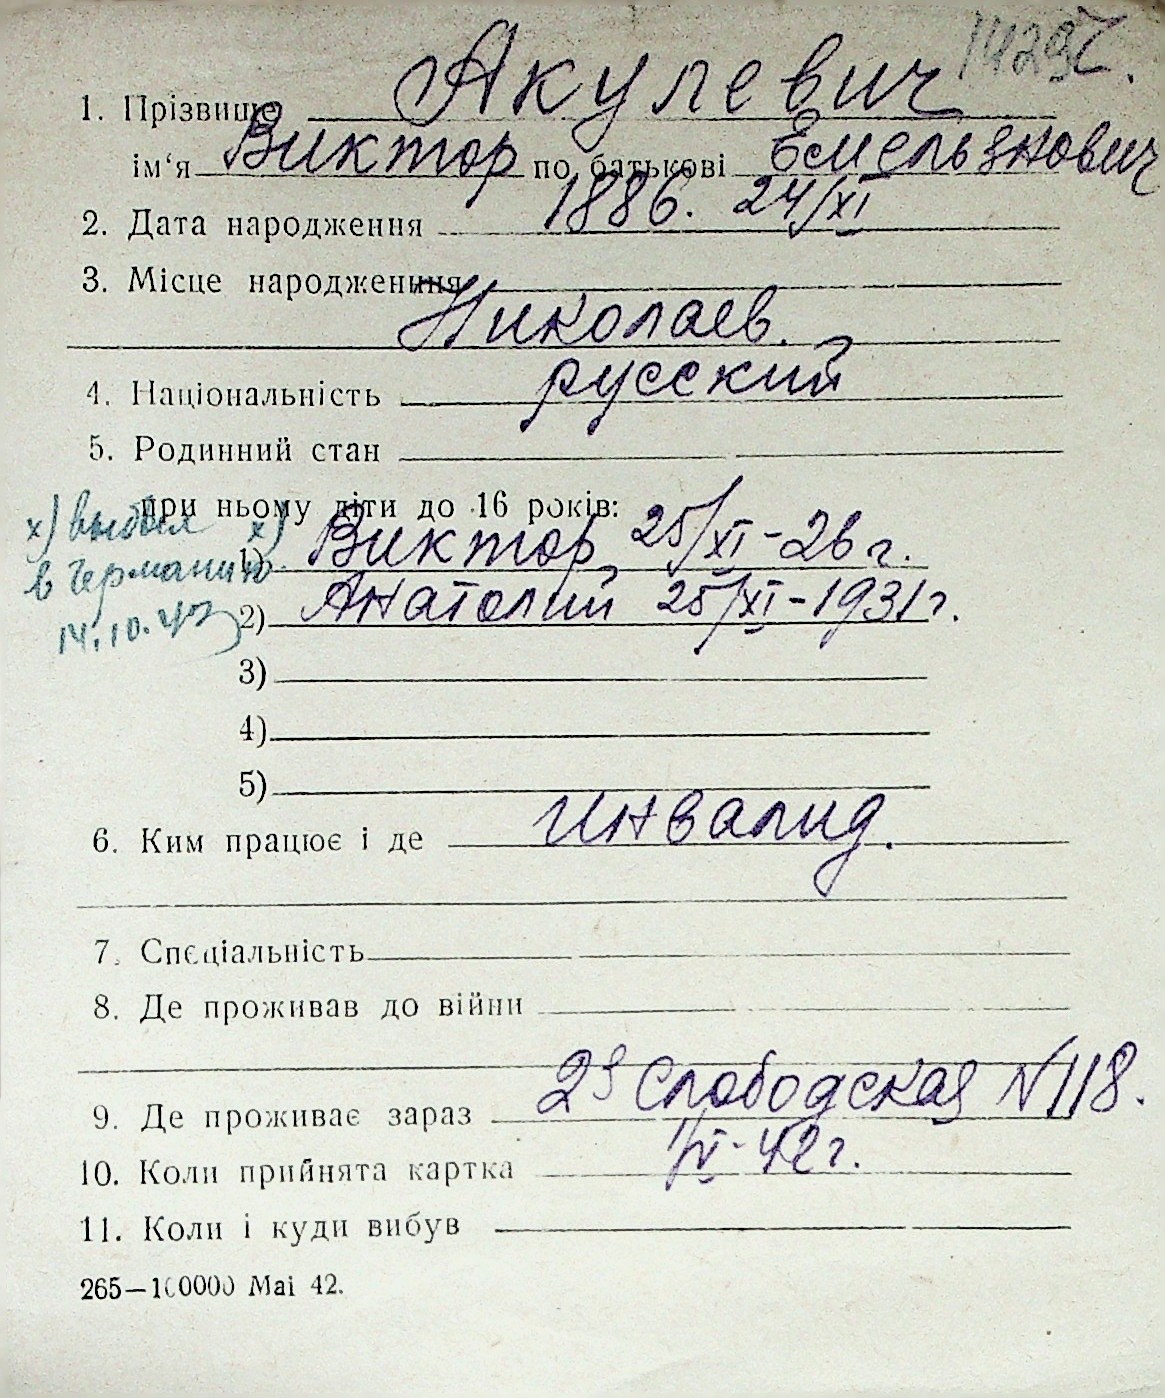 1429
1. Прізвище Акулевич
ім‘я Виктор по батькові Емельянович
2. Дата народження 1886. 24/XI
3. Місце народженння
Николаев.
4. Національність русский
5. Родинний стан
при ньому діти до 16 років:
х) выбыл х)
1) Виктор 25/XI-26 г.
в Германию.
2) Анатолий 25/XI-1931 г.
14.10.43
3)
4)
5)
6. Ким працює і де инвалид.
7. Спеціальність
8. Де проживав до війни
9. Де проживає зараз 2я Слободская N 118.
10. Коли прийнята картка 1/VI-42 г.
11. Коли і куди вибув
265—100000 Mai 42.